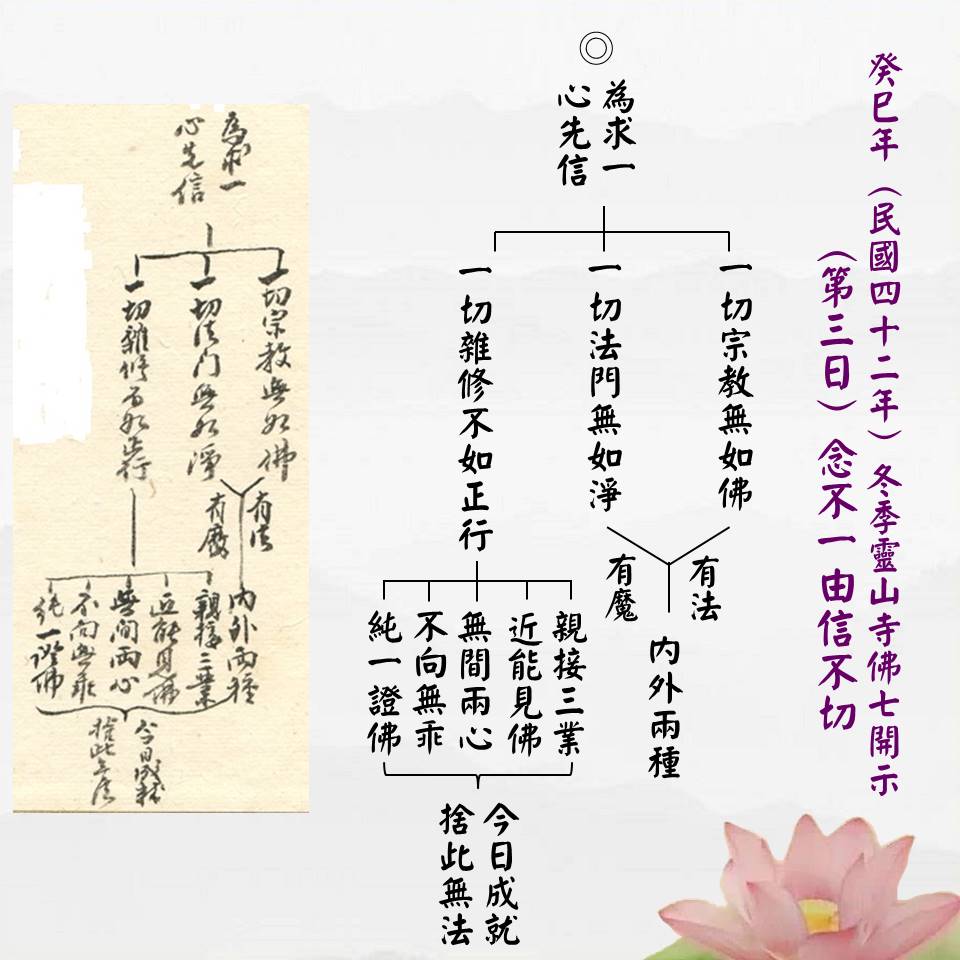 癸巳年（民國四十二年）冬季靈山寺佛七開示
（第三日）念不一由信不切
◎
為求一
心先信
一切宗教無如佛
一切法門無如淨
一切雜修不如正行
有法
有魔
內外兩種
親接三業
近能見佛
無間兩心
不向無乖
純一證佛
今日成就
捨此無法
為求一
心先信
一切宗教無如佛
一切法门無如淨
一切雜修不如正行
有法
有魔
內外兩種
親接三業
近能見佛
無間兩心
不向無乖
純一證佛
今日成就
捨此無法